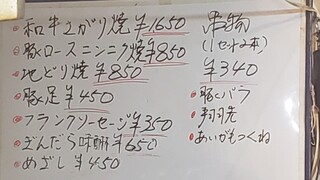 和牛上がり焼 ¥1650
豚ロースニンニク焼 ¥850
地どり焼 ¥850
豚足 ¥450
フランクソーセージ ¥350
ぎんだら味醂 ¥650
めざし ¥450
串物
(1セット2本)
¥340
豚バラ
手羽先
あいがもつくね